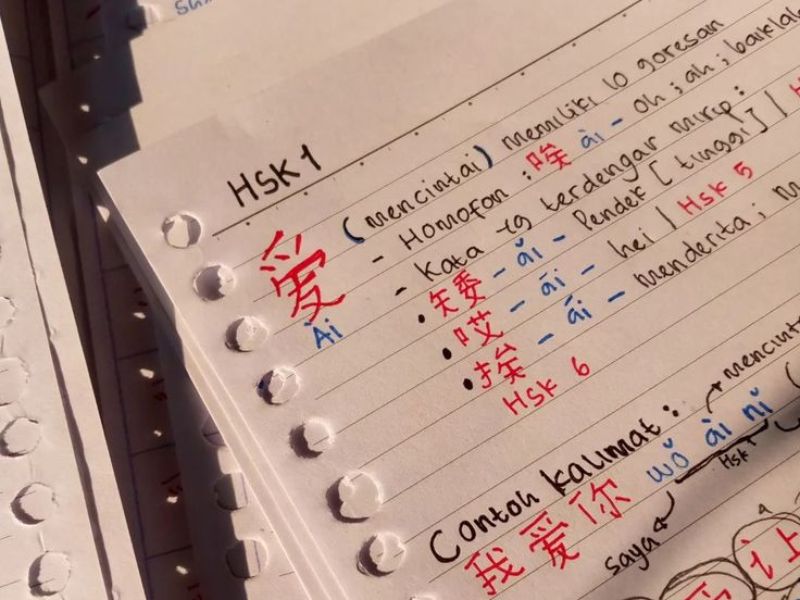 HSK 1
爱 (mencintai) memiliki 10 goresan
Ài
- Homofon : 唉 ài - oh ; ah ;
- Kata yg terdengar mirip :
• 矮 - ǎi - Pendek [tinggi] |
• 哎 - āi - hei | Hsk 5
• 挨 - ái - menderita ;
Hsk 6
Contoh kalimat :
我爱你 wǒ ài nǐ
saya
Hsk 1
让